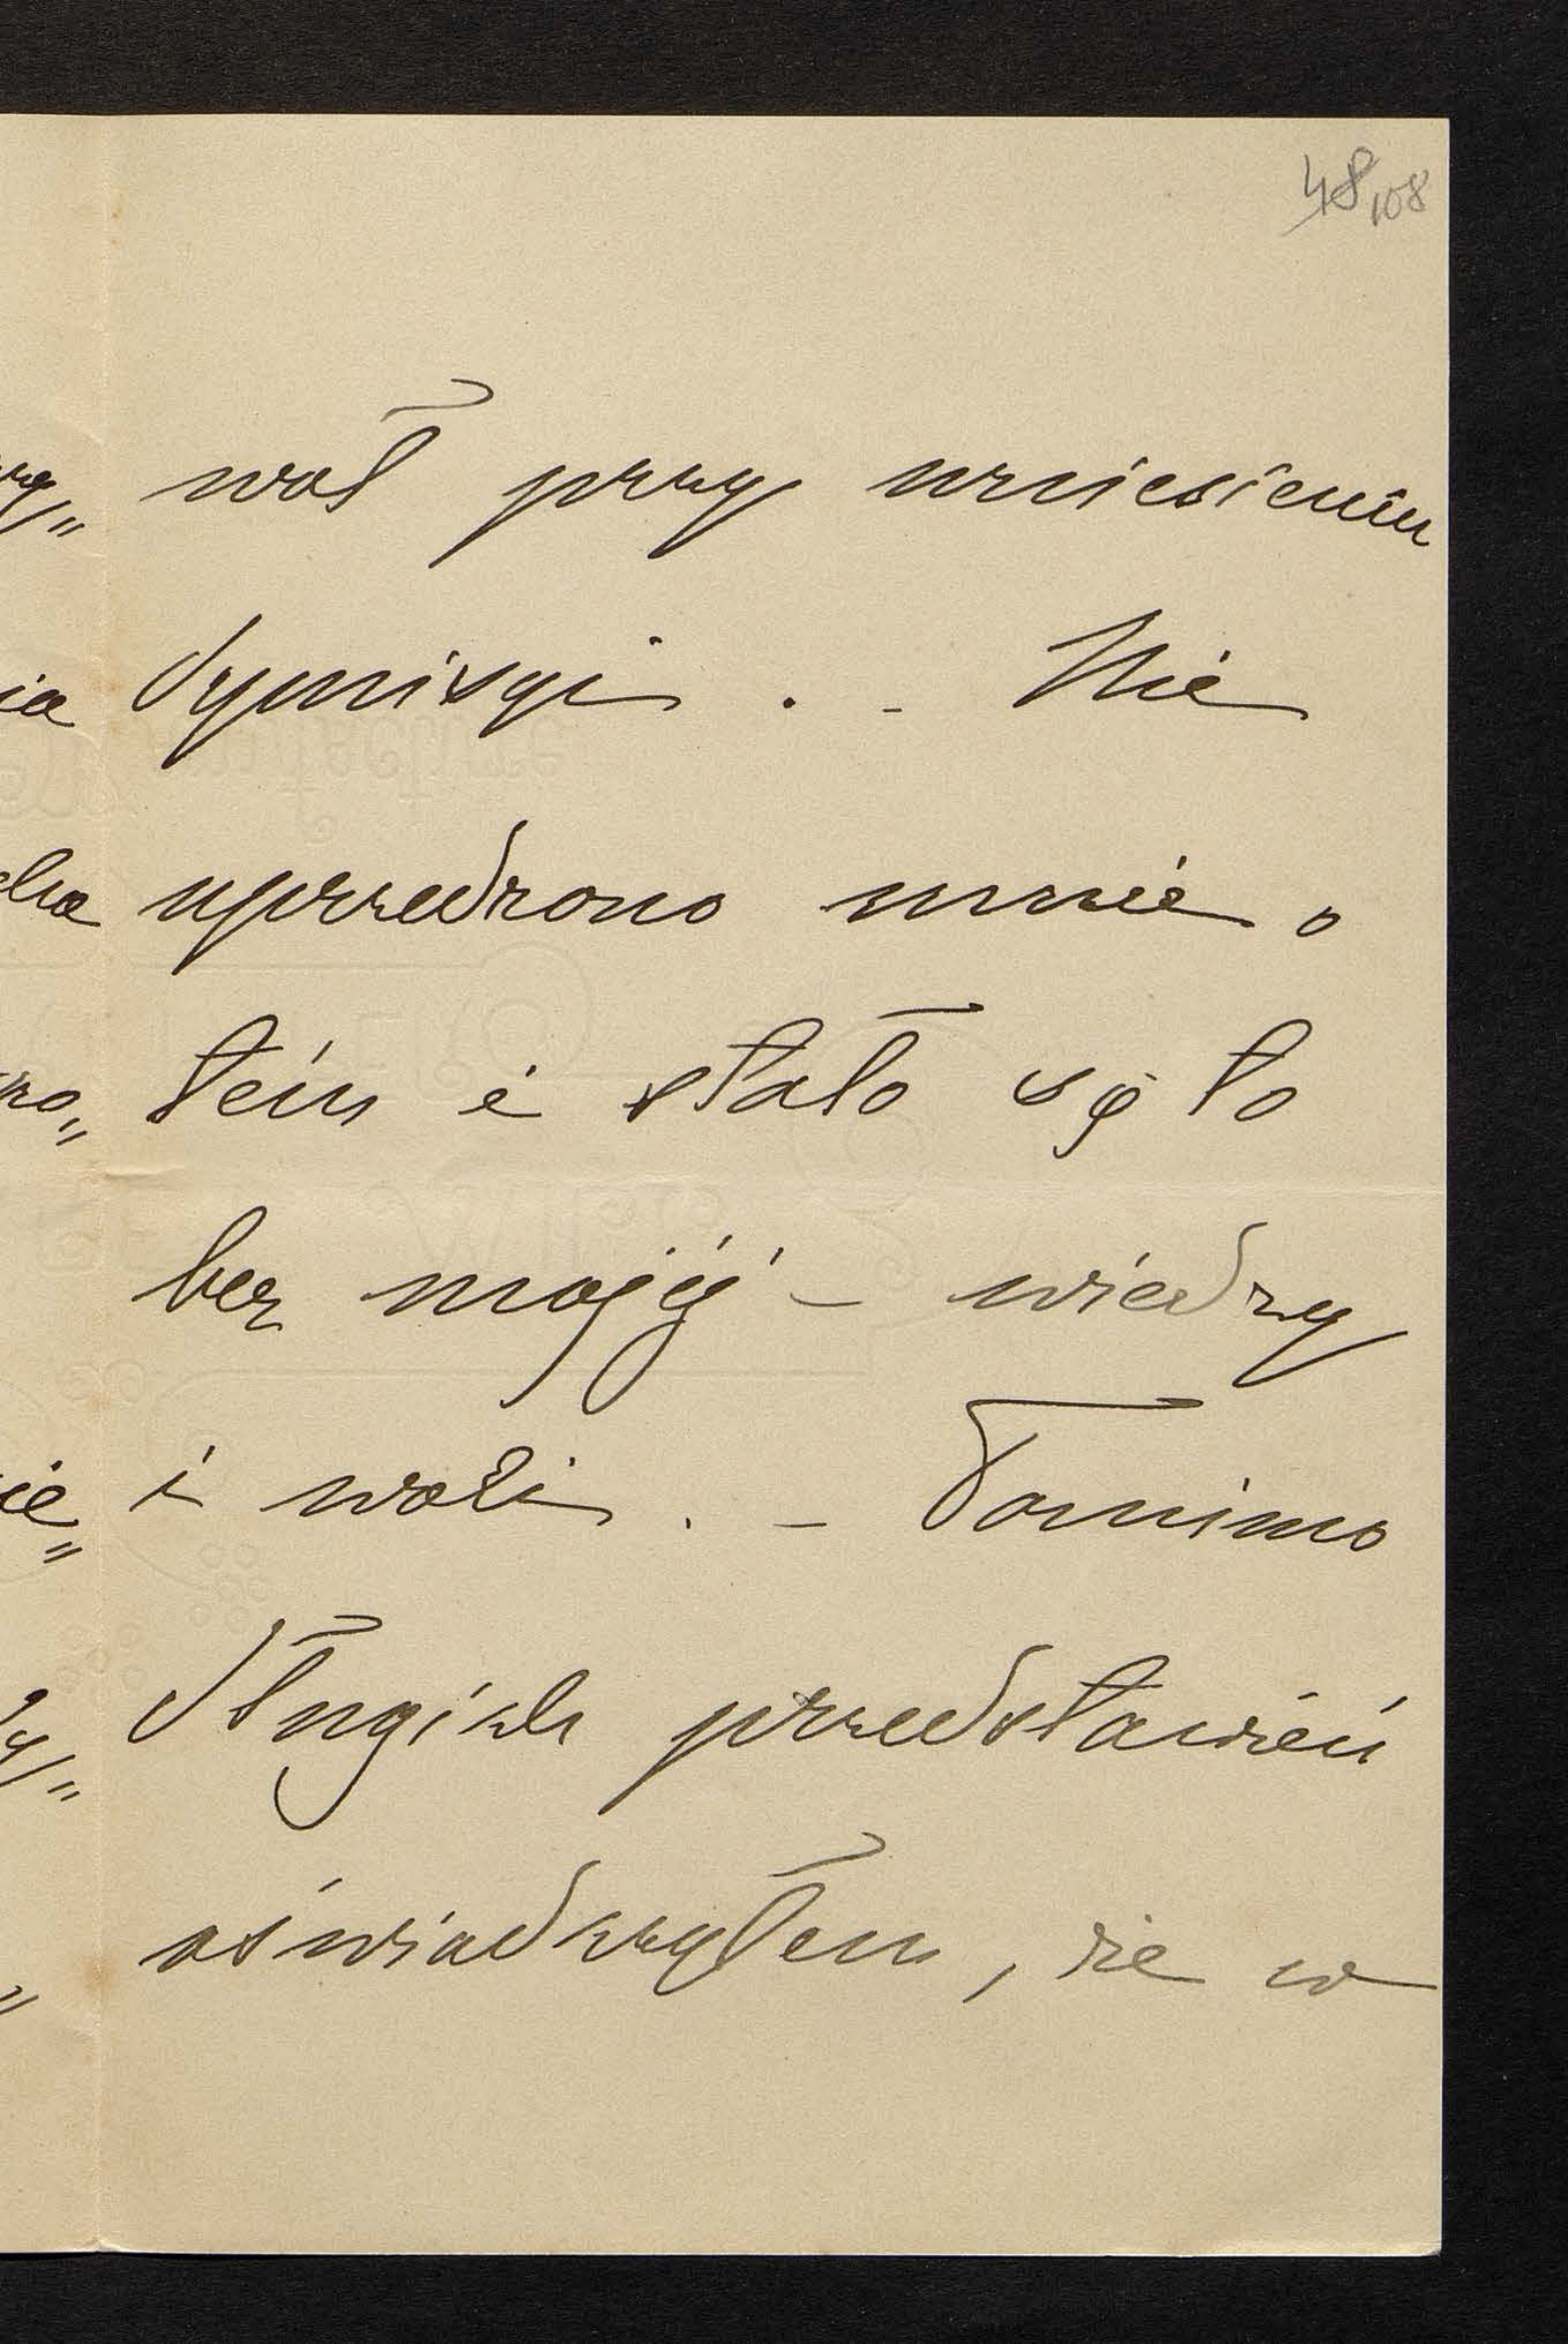 48 108
wał przy wniesieniu
dymisyi . - Nie
uprzedzono mnie o
tém i stało się to
bez mojéj - wiedzy
i woli . - Pomimo
długich przedstawień
oświadczyłem, że w